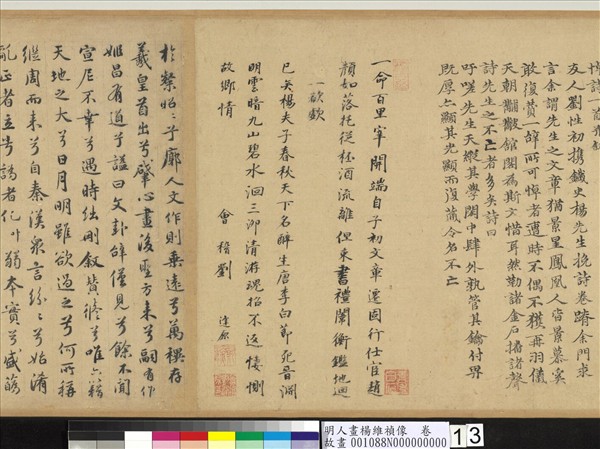 悼詩一首并敘
友人劉性初携鐵史楊先生挽詩卷躋余門求
言余謂先生之文章猶景星鳳凰人皆景慕奚
敢復贅一辭所可悼者遭時不偶不獲再羽儀
天朝黼黻館閣為斯文惜耳然勒諸金石播諸聲
詩先生之不亡者多矣詩曰
吁嗟先生天縱其學閎中肆外執管其鑰付畀
既厚亦顯其光顯而復藏令名不亡
一命百里宰開端自子初文章遷固行仕宦趙
顏如落托從杯酒流離但束書禮闈衡鑑地迴
一欷歔
已矣楊夫子春秋天下名醉生唐李白節死晉淵
明雲暗九山碧水洄三泖清游魂招不返悽惻
故鄉情
會稽劉
於繫昭〻子廓人文作則乘遠兮萬禩存
羲皇首出兮肇心畫後聖方來兮嗣有作
姬昌有逌兮謚曰文卦辞僅見兮餘不聞
宣尼不幸兮遇時絀刪叙贊脩兮唯六籍
天地之大兮日月明雖欲過之兮何所稱
繼周而來兮自秦漢衆言紛〻兮始淆
亂正者立
明人畫楊維禎像 卷
故畫 001088N000000000
13